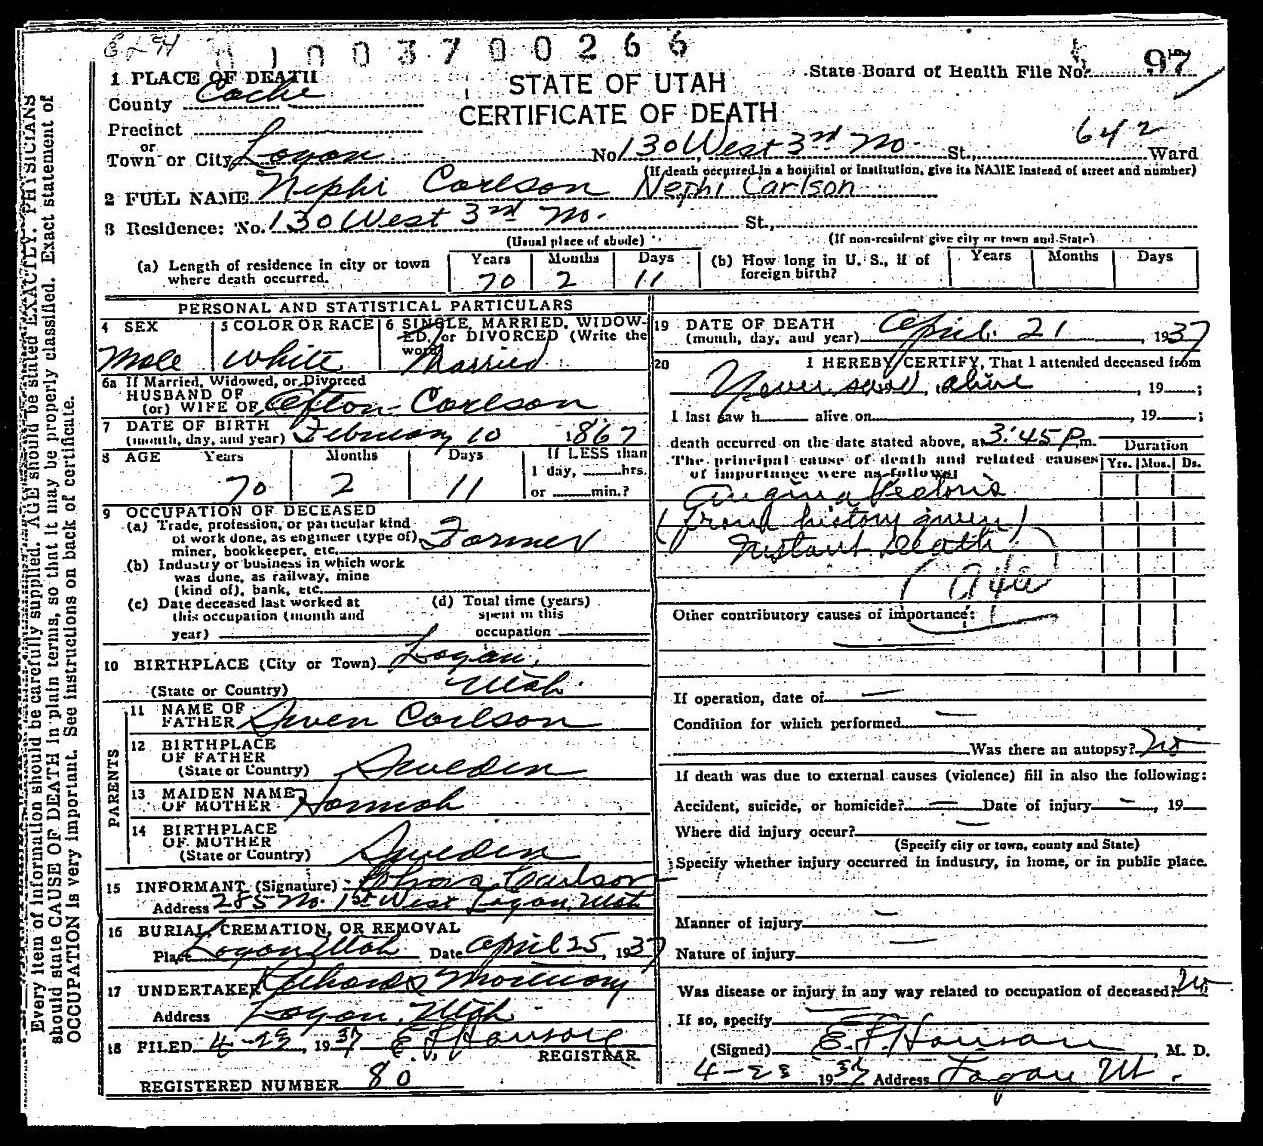 ELH 01003700266
State Board of Health File No. 97
STATE OF UTAH
CERTIFICATE OF DEATH
1 PLACE OF DEATH
County Cache
Precinct
or
Town or City Logan No. 130 West 3rd No. St., 642 Ward
(If death occurred in a hospital or institution, give its NAME instead of street and number)
2 FULL NAME Nephi Carlson Nephi Carlson
3 Residence: No. 130 West 3rd No. St.,
(Usual place of abode) (If non-resident give city or town and State)
(a) Length of residence in city or town where death occurred. Years 70 Months 2 Days 11
(b) How long in U. S., if of foreign birth? Years Months Days
PERSONAL AND STATISTICAL PARTICULARS
4 SEX Male
5 COLOR OR RACE White
6 SINGLE, MARRIED, WIDOWED, or DIVORCED (Write the word) Married
6a If Married, Widowed, or Divorced
HUSBAND OF
(or) WIFE OF Afton Carlson
7 DATE OF BIRTH
(month, day, and year) February 10 1867
8 AGE Years Months Days If LESS than
70 2 11 1 day, hrs.
or min.?
9 OCCUPATION OF DECEASED
(a) Trade, profession, or particular kind
of work done, as engineer (type of)
miner, bookkeeper, etc. Farmer
(b) Industry or business in which work
was done, as railway, mine
(kind of), bank, etc.
(c) Date deceased last worked at
this occupation (month and
year)
(d) Total time (years)
spent in this
occupation
10 BIRTHPLACE (City or Town) Logan,
(State or Country) Utah.
PARENTS
11 NAME OF
FATHER Swen Carlson
12 BIRTHPLACE
OF FATHER
(State or Country) Sweden
13 MAIDEN NAME
OF MOTHER Hannah
14 BIRTHPLACE
OF MOTHER
(State or Country) Sweden
15 INFORMANT (Signature) Carlson
Address 285 No. 1st West Logan, Utah
16 BURIAL, CREMATION, OR REMOVAL
Place Logan Utah Date April 25, 1937
17 UNDERTAKER Richards Mortuary
Address Logan, Utah.
18 FILED 4-23, 1937 E. L. Hanson
REGISTRAR.
REGISTERED NUMBER 80
19 DATE OF DEATH
(month, day, and year) April 21 1937
20 I HEREBY CERTIFY, That I attended deceased from
Never saw alive, 19 ;
I last saw h alive on , 19 ;
death occurred on the date stated above, at 3:45 P m.
The principal cause of death and related causes
of importance were as follows:
Duration
Yrs. Mos. Ds.
Angina Pectoris
(from history given)
Instant Death
Other contributory causes of importance:
If operation, date of
Condition for which performed
Was there an autopsy? No
If death was due to external causes (violence) fill in also the following:
Accident, suicide, or homicide? Date of injury , 19
Where did injury occur?
(Specify city or town, county and State)
Specify whether injury occurred in industry, in home, or in public place.
Manner of injury
Nature of injury
Was disease or injury in any way related to occupation of deceased? No
If so, specify
(Signed) E. L. Hanson, M. D.
4-23 1937 Address Logan Ut.
Every item of information should be carefully supplied. AGE should be stated EXACTLY. PHYSICIANS
should state CAUSE OF DEATH in plain terms, so that it may be properly classified. Exact statement of
OCCUPATION is very important. See instructions on back of certificate.